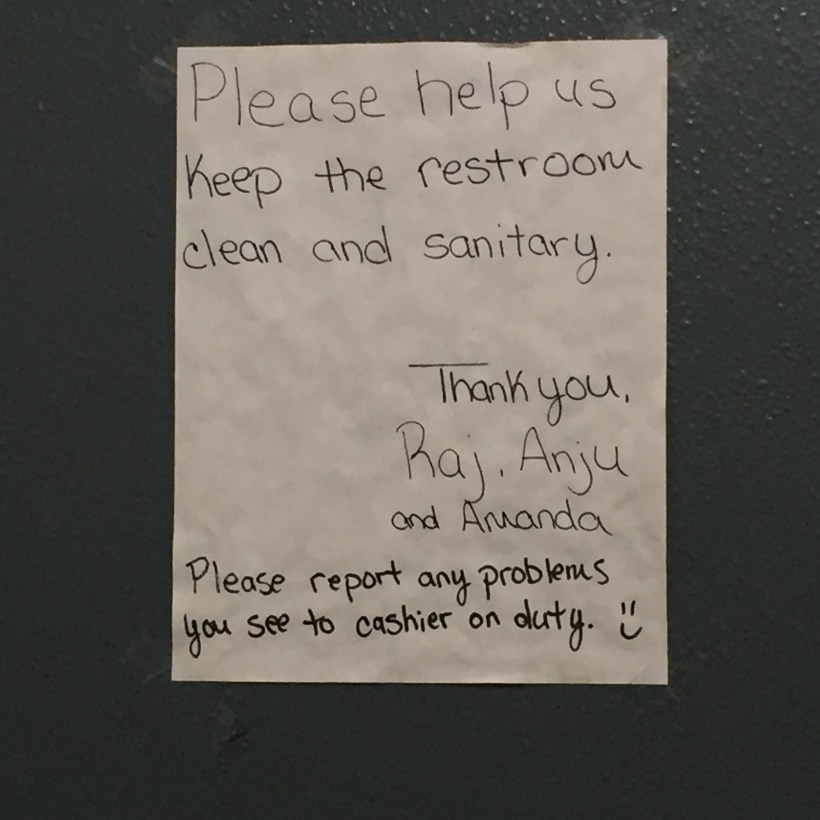 Please help us
Keep the restroom
clean and sanitary.
Thank you,
Raj, Anju
and Amanda
Please report any problems
you see to cashier on duty. :)